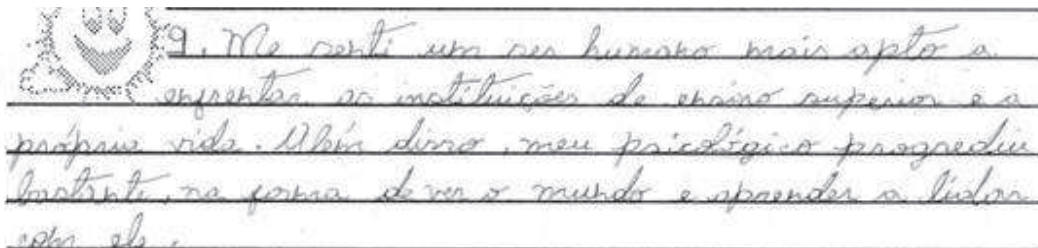 9. Me senti um ser humano mais apto a
enfrentar as instituições de ensino superior e a
própria vida. Além disso, meu psicológico progrediu
bastante, na forma de ver o mundo e aprender a lidar
com ele.